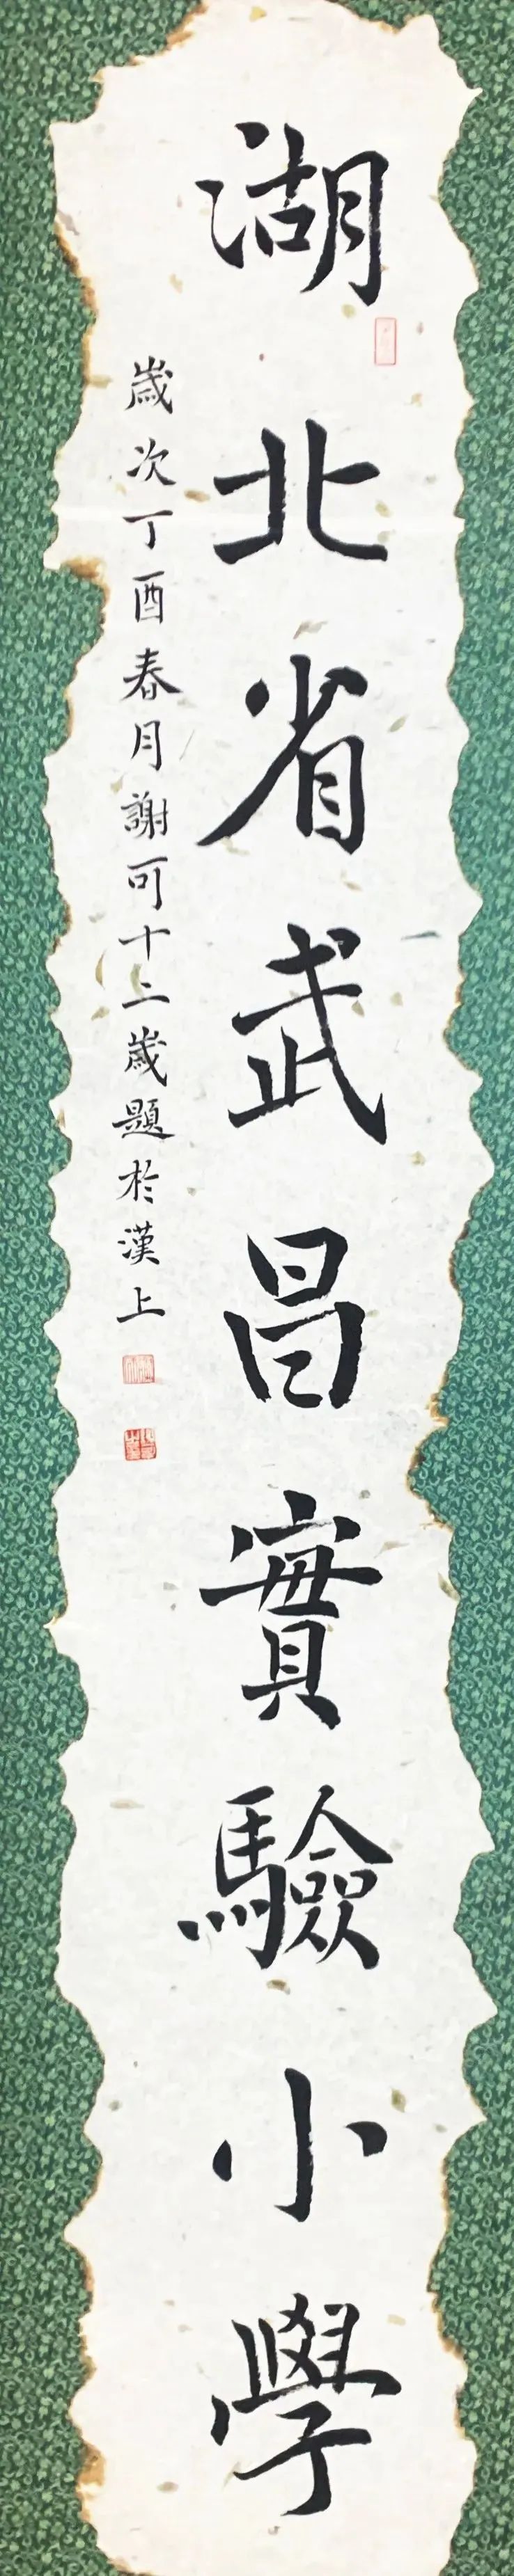 湖北省武昌實驗小學
歲次丁酉春月謝可十二歲題於漢上